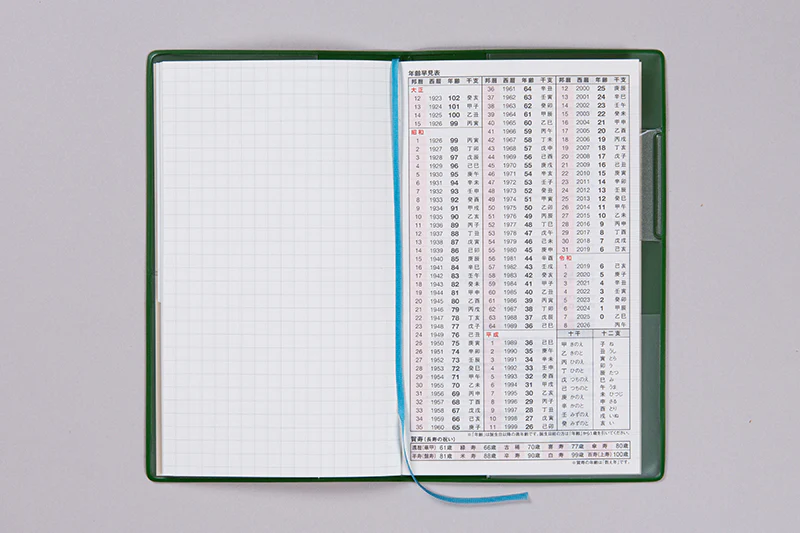 年齢早見表
邦暦 西暦 年齢 干支
大正
12 1923 102 癸亥
13 1924 101 甲子
14 1925 100 乙丑
15 1926 99 丙寅
昭和
1 1926 99 丙寅
2 1927 98 丁卯
3 1928 97 戊辰
4 1929 96 己巳
5 1930 95 庚午
6 1931 94 辛未
7 1932 93 壬申
8 1933 92 癸酉
9 1934 91 甲戌
10 1935 90 乙亥
11 1936 89 丙子
12 1937 88 丁丑
13 1938 87 戊寅
14 1939 86 己卯
15 1940 85 庚辰
16 1941 84 辛巳
17 1942 83 壬午
18 1943 82 癸未
19 1944 81 甲申
20 1945 80 乙酉
21 1946 79 丙戌
22 1947 78 丁亥
23 1948 77 戊子
24 1949 76 己丑
25 1950 75 庚寅
26 1951 74 辛卯
27 1952 73 壬辰
28 1953 72 癸巳
29 1954 71 甲午
30 1955 70 乙未
31 1956 69 丙申
32 1957 68 丁酉
33 1958 67 戊戌
34 1959 66 己亥
35 1960 65 庚子
邦暦 西暦 年齢 干支
36 1961 64 辛丑
37 1962 63 壬寅
38 1963 62 癸卯
39 1964 61 甲辰
40 1965 60 乙巳
41 1966 59 丙午
42 1967 58 丁未
43 1968 57 戊申
44 1969 56 己酉
45 1970 55 庚戌
46 1971 54 辛亥
47 1972 53 壬子
48 1973 52 癸丑
49 1974 51 甲寅
50 1975 50 乙卯
51 1976 49 丙辰
52 1977 48 丁巳
53 1978 47 戊午
54 1979 46 己未
55 1980 45 庚申
56 1981 44 辛酉
57 1982 43 壬戌
58 1983 42 癸亥
59 1984 41 甲子
60 1985 40 乙丑
61 1986 39 丙寅
62 1987 38 丁卯
63 1988 37 戊辰
64 1989 36 己巳
平成
1 1989 36 己巳
2 1990 35 庚午
3 1991 34 辛未
4 1992 33 壬申
5 1993 32 癸酉
6 1994 31 甲戌
7 1995 30 乙亥
8 1996 29 丙子
9 1997 28 丁丑
10 1998 27 戊寅
11 1999 26 己卯
邦暦 西暦 年齢 干支
12 2000 25 庚辰
13 2001 24 辛巳
14 2002 23 壬午
15 2003 22 癸未
16 2004 21 甲申
17 2005 20 乙酉
18 2006 19 丙戌
19 2007 18 丁亥
20 2008 17 戊子
21 2009 16 己丑
22 2010 15 庚寅
23 2011 14 辛卯
24 2012 13 壬辰
25 2013 12 癸巳
26 2014 11 甲午
27 2015 10 乙未
28 2016 9 丙申
29 2017 8 丁酉
30 2018 7 戊戌
31 2019 6 己亥
令和
1 2019 6 己亥
2 2020 5 庚子
3 2021 4 辛丑
4 2022 3 壬寅
5 2023 2 癸卯
6 2024 1 甲辰
7 2025 0 乙巳
8 2026 丙午
十干 十二支
甲 きのえ
乙 きのと
丙 ひのえ
丁 ひのと
戊 つちのえ
己 つちのと
庚 かのえ
辛 かのと
壬 みずのえ
癸 みずのと
子 ね
丑 うし
寅 とら
卯 う
辰 たつ
巳 み
午 うま
未 ひつじ
申 さる
酉 とり
戌 いぬ
亥 い
※「年齢」は誕生日以後の満年齢です。誕生日前の方は「年齢」から1歳を引いてください。
賀寿(長寿の祝い)
還暦(華甲) 61歳 緑寿 66歳 古稀 70歳 喜寿 77歳 傘寿 80歳
半寿(盤寿) 81歳 米寿 88歳 卒寿 90歳 白寿 99歳 百寿(上寿) 100歳
※賀寿の年齢は「数え年」です。